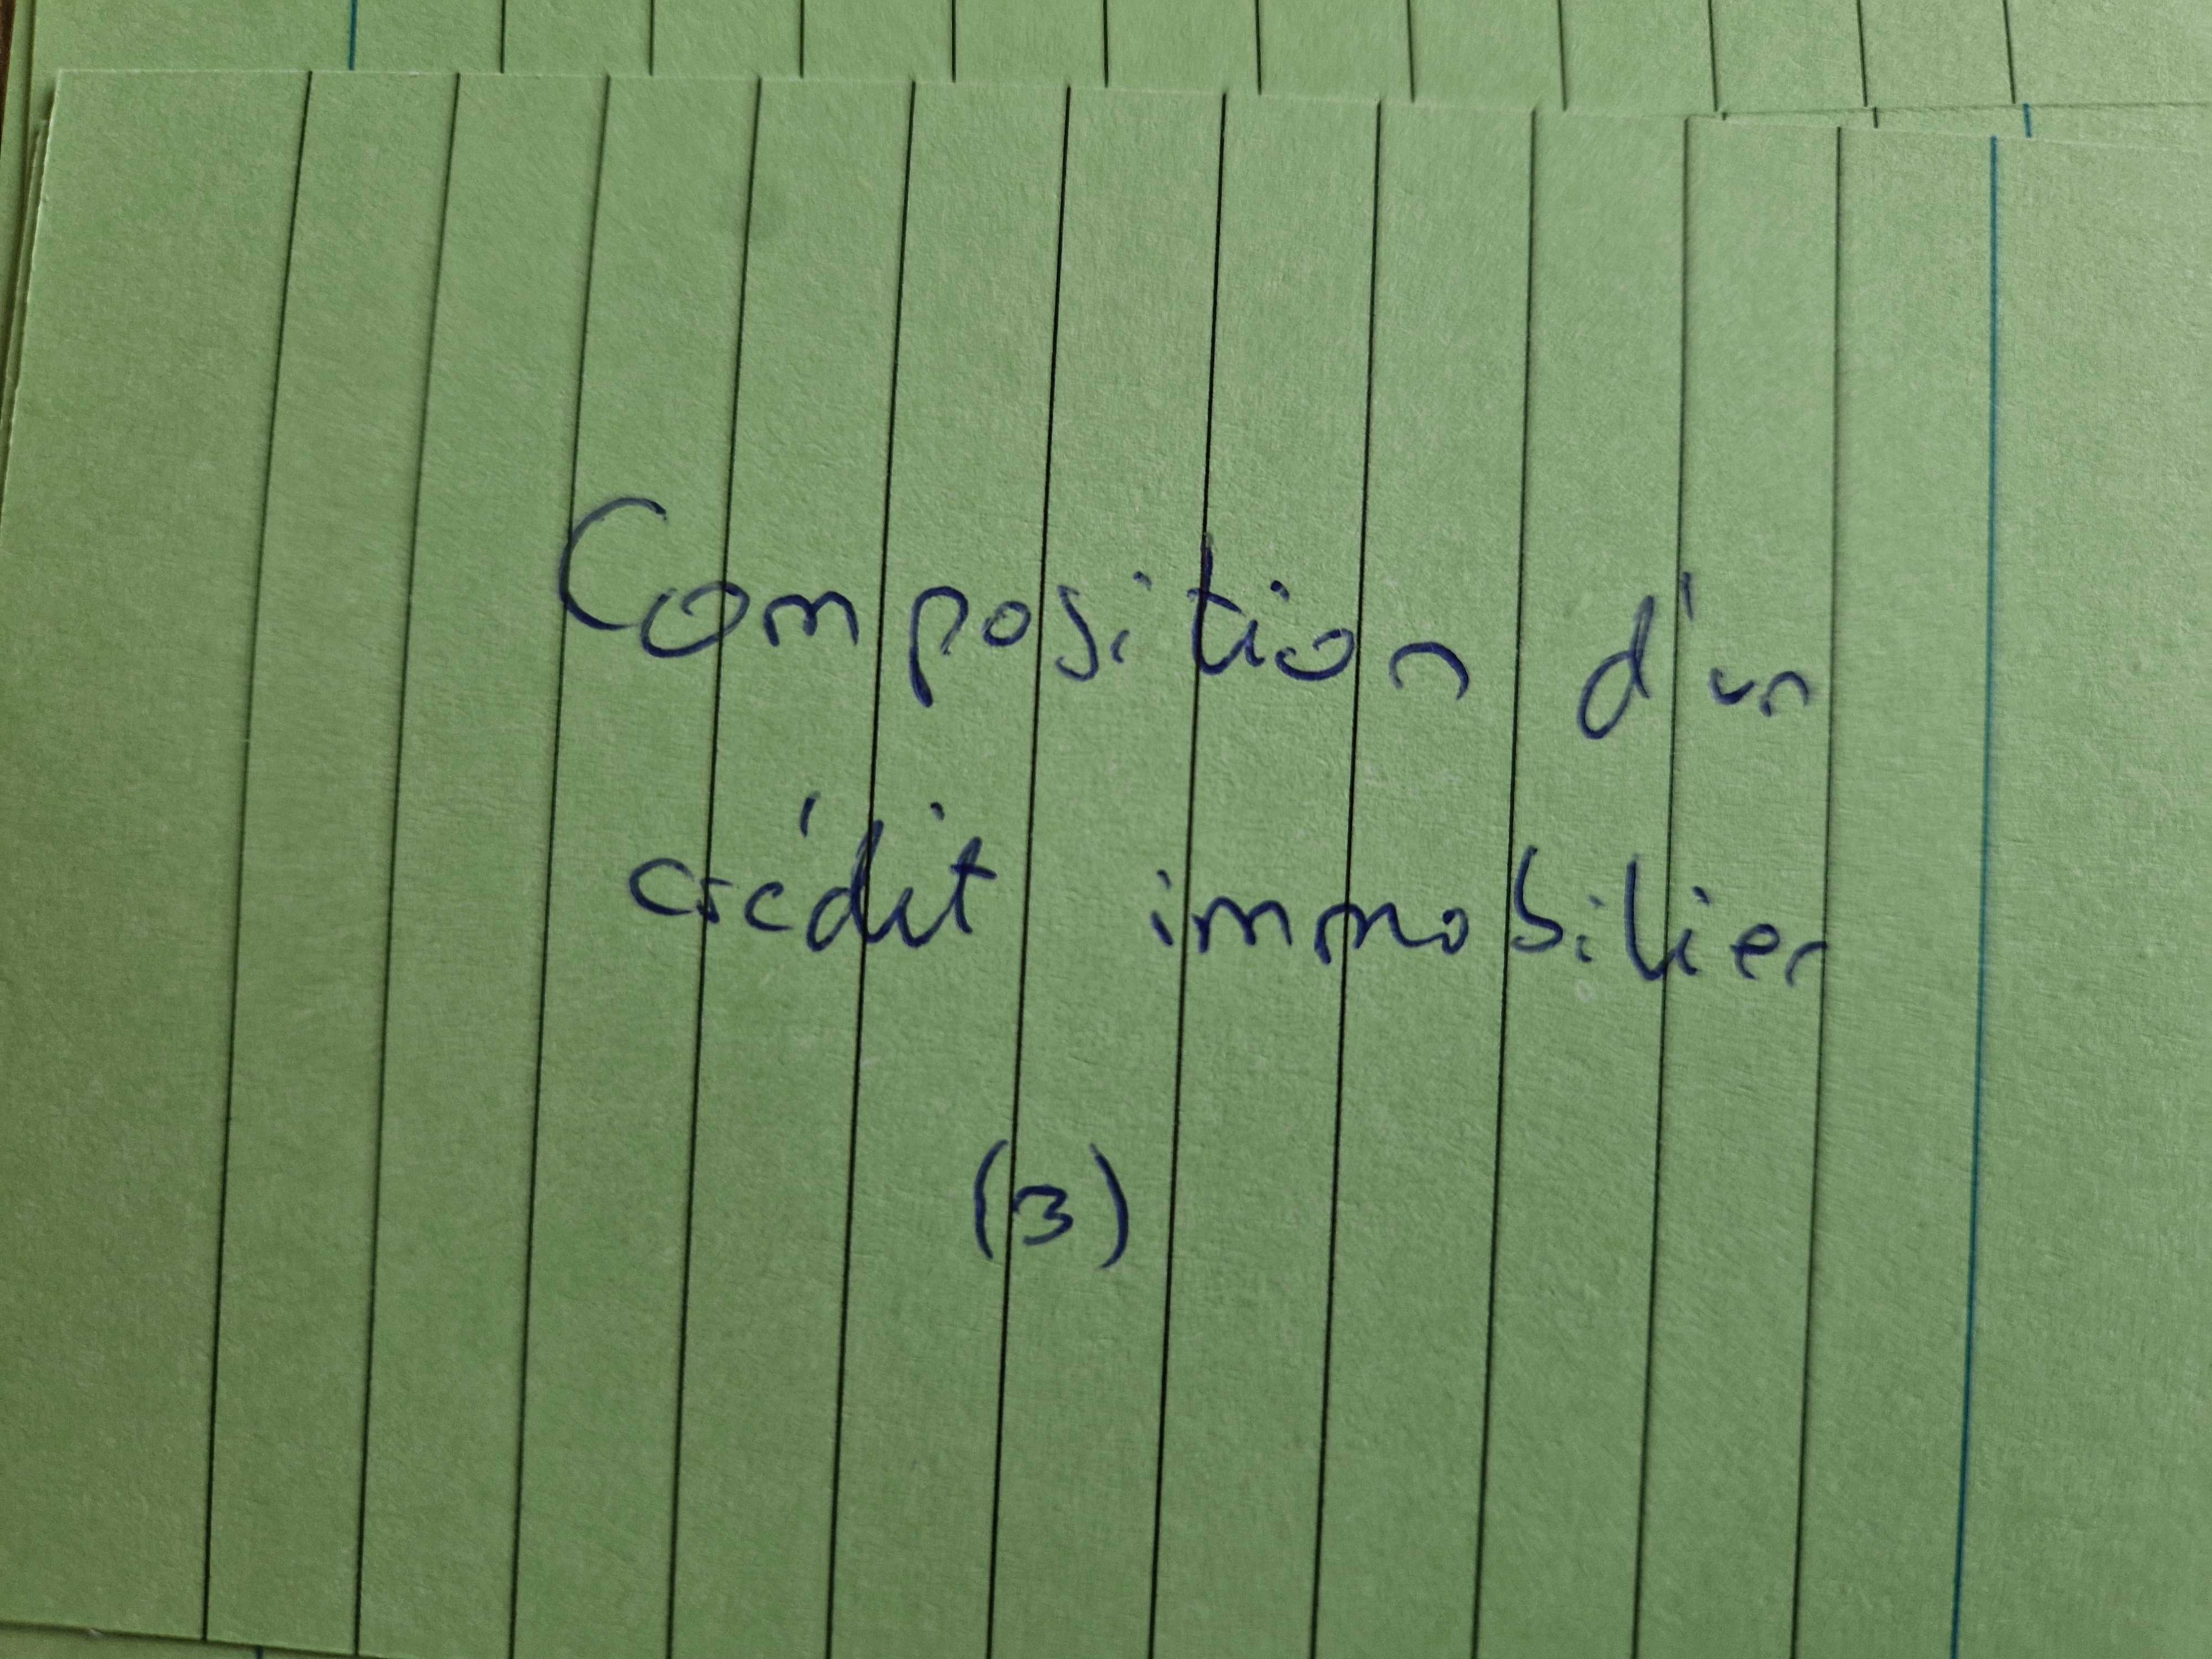 Composition d'un
crédit immobilier
(3)